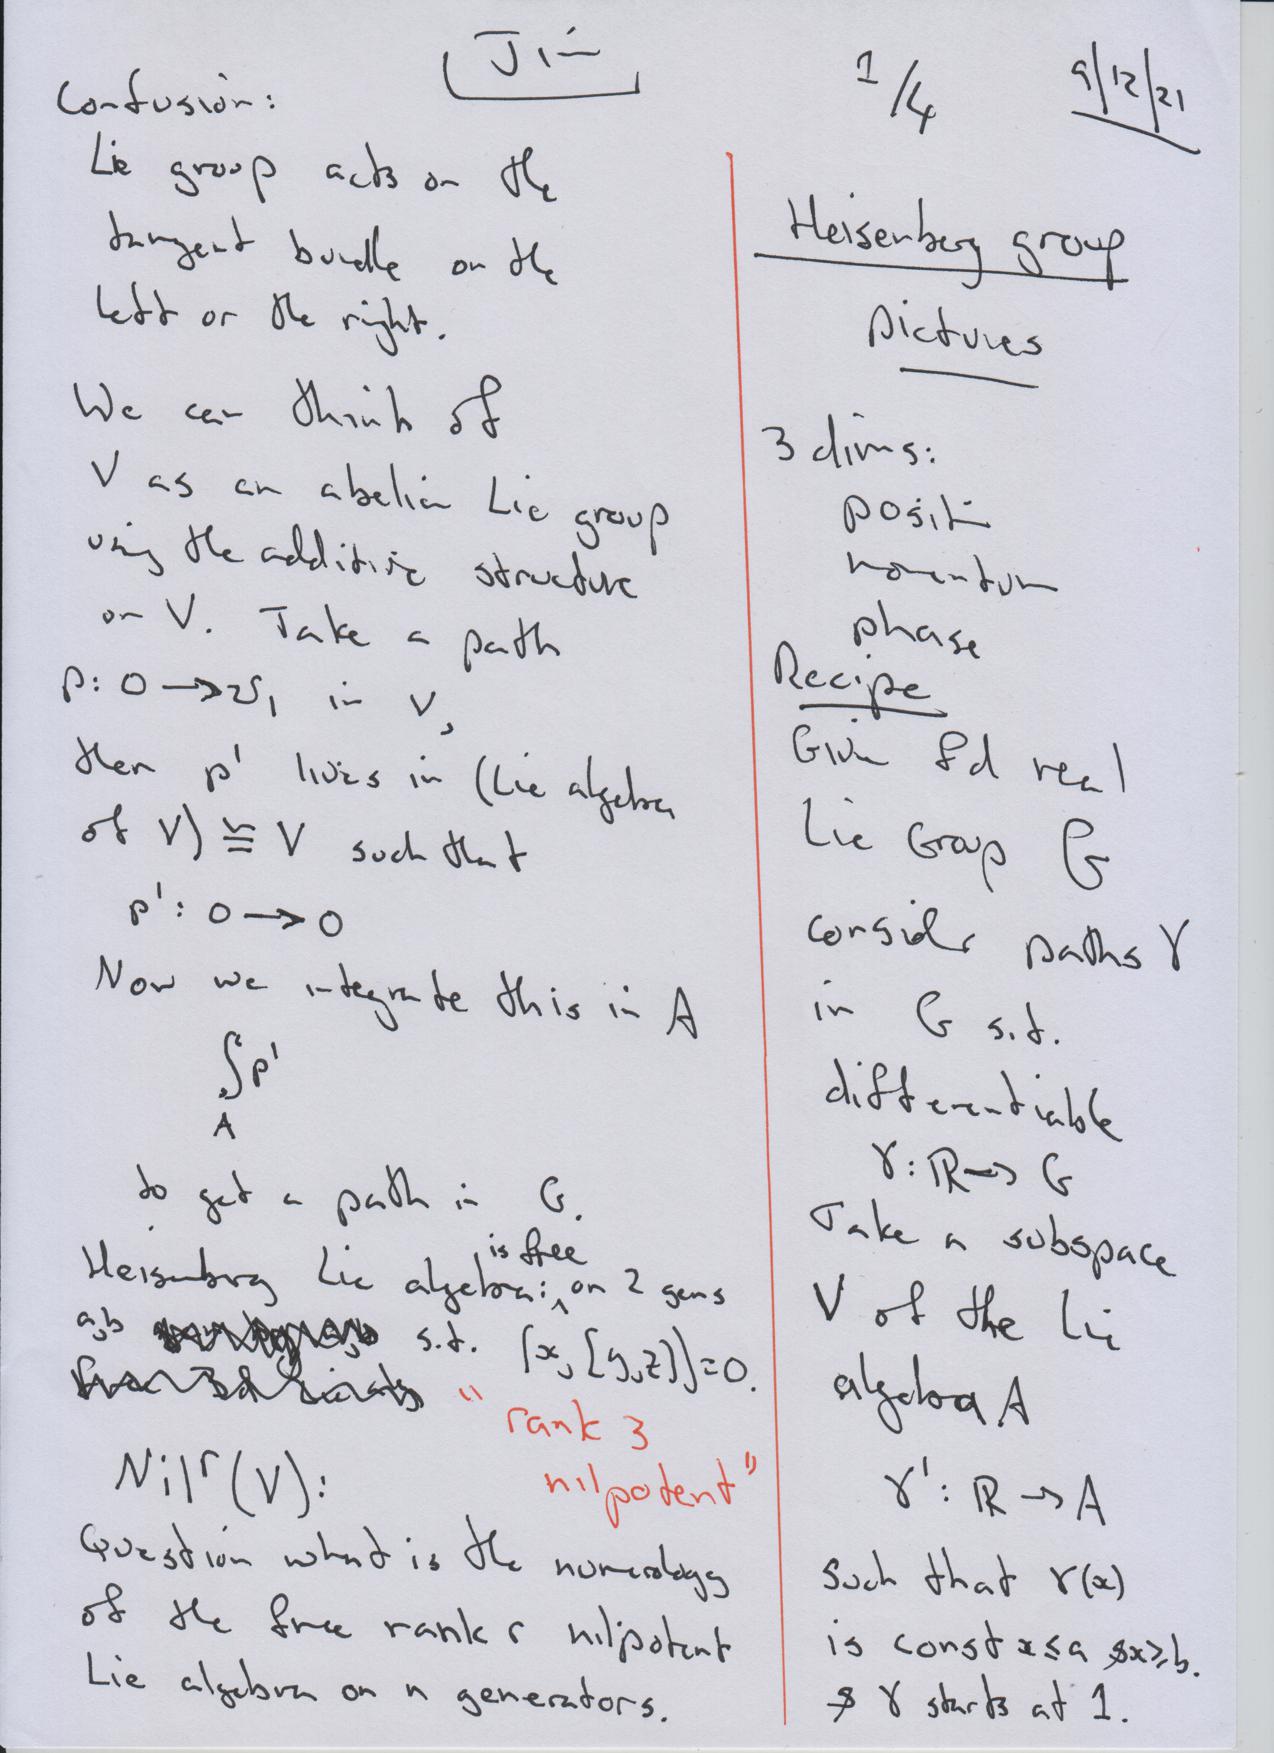 Jim
1/4
9/12/21
Confusion:
Lie group acts on the
tangent bundle on the
left or the right.
We can think of
V as an abelian Lie group
using the additive structure
on V. Take a path
p: 0 → v₁ in V,
then p' lives in (Lie algebra
of V) ≅ V such that
p': 0 → 0
Now we integrate this in A
∫p'
A
to get a path in G.
Heisenberg Lie algebra: is free on 2 gens
a,b s.t. [x,[y,z]]=0.
"rank 3
nilpotent"
Nilʳ(V):
Question what is the numerology
of the free rank r nilpotent
Lie algebra on n generators.
Heisenberg group
Pictures
3 dims:
position
momentum
phase
Recipe
Given fd real
Lie Group G
consider paths γ
in G s.t.
differentiable
γ: ℝ → G
Take a subspace
V of the Lie
algebra A
γ': ℝ → A
such that γ(x)
is const x≤a & x≥b.
& γ starts at 1.